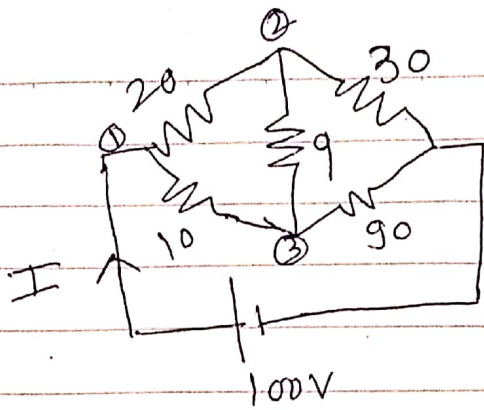 ②
20
30
①
9
10
③
90
I
100V